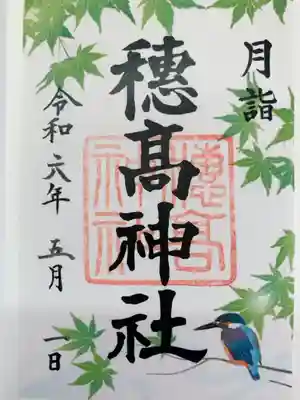 月詣
穂髙神社
令和六年 五月 一日
穂高
神社